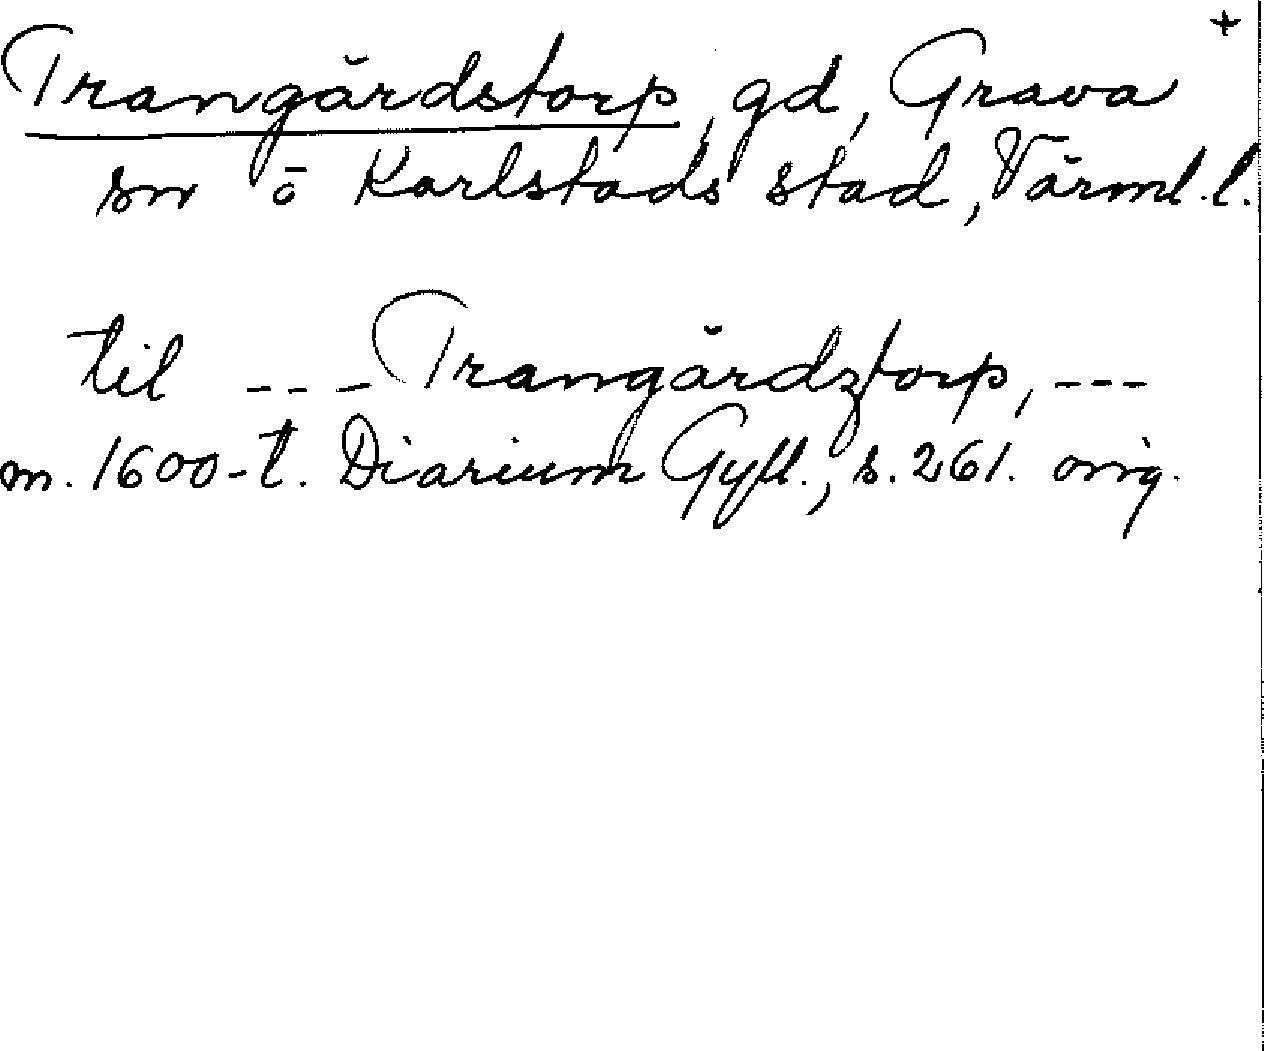 +
Trangårdstorp, gd, Grava
sn o Karlstads stad, Värml. l.
til --- Trangårdztorp, ---
m. 1600-t. Diarium Gyll., s. 261. orig.